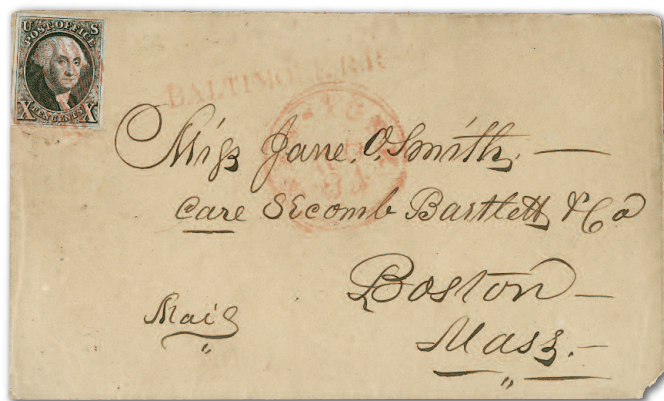 U S
POST OFFICE
X TEN CENTS X
BALTIMORE R.R.
Miss Jane. O. Smith. —
Care Secomb Bartlett & Co
Boston —
Mail
Mass. —